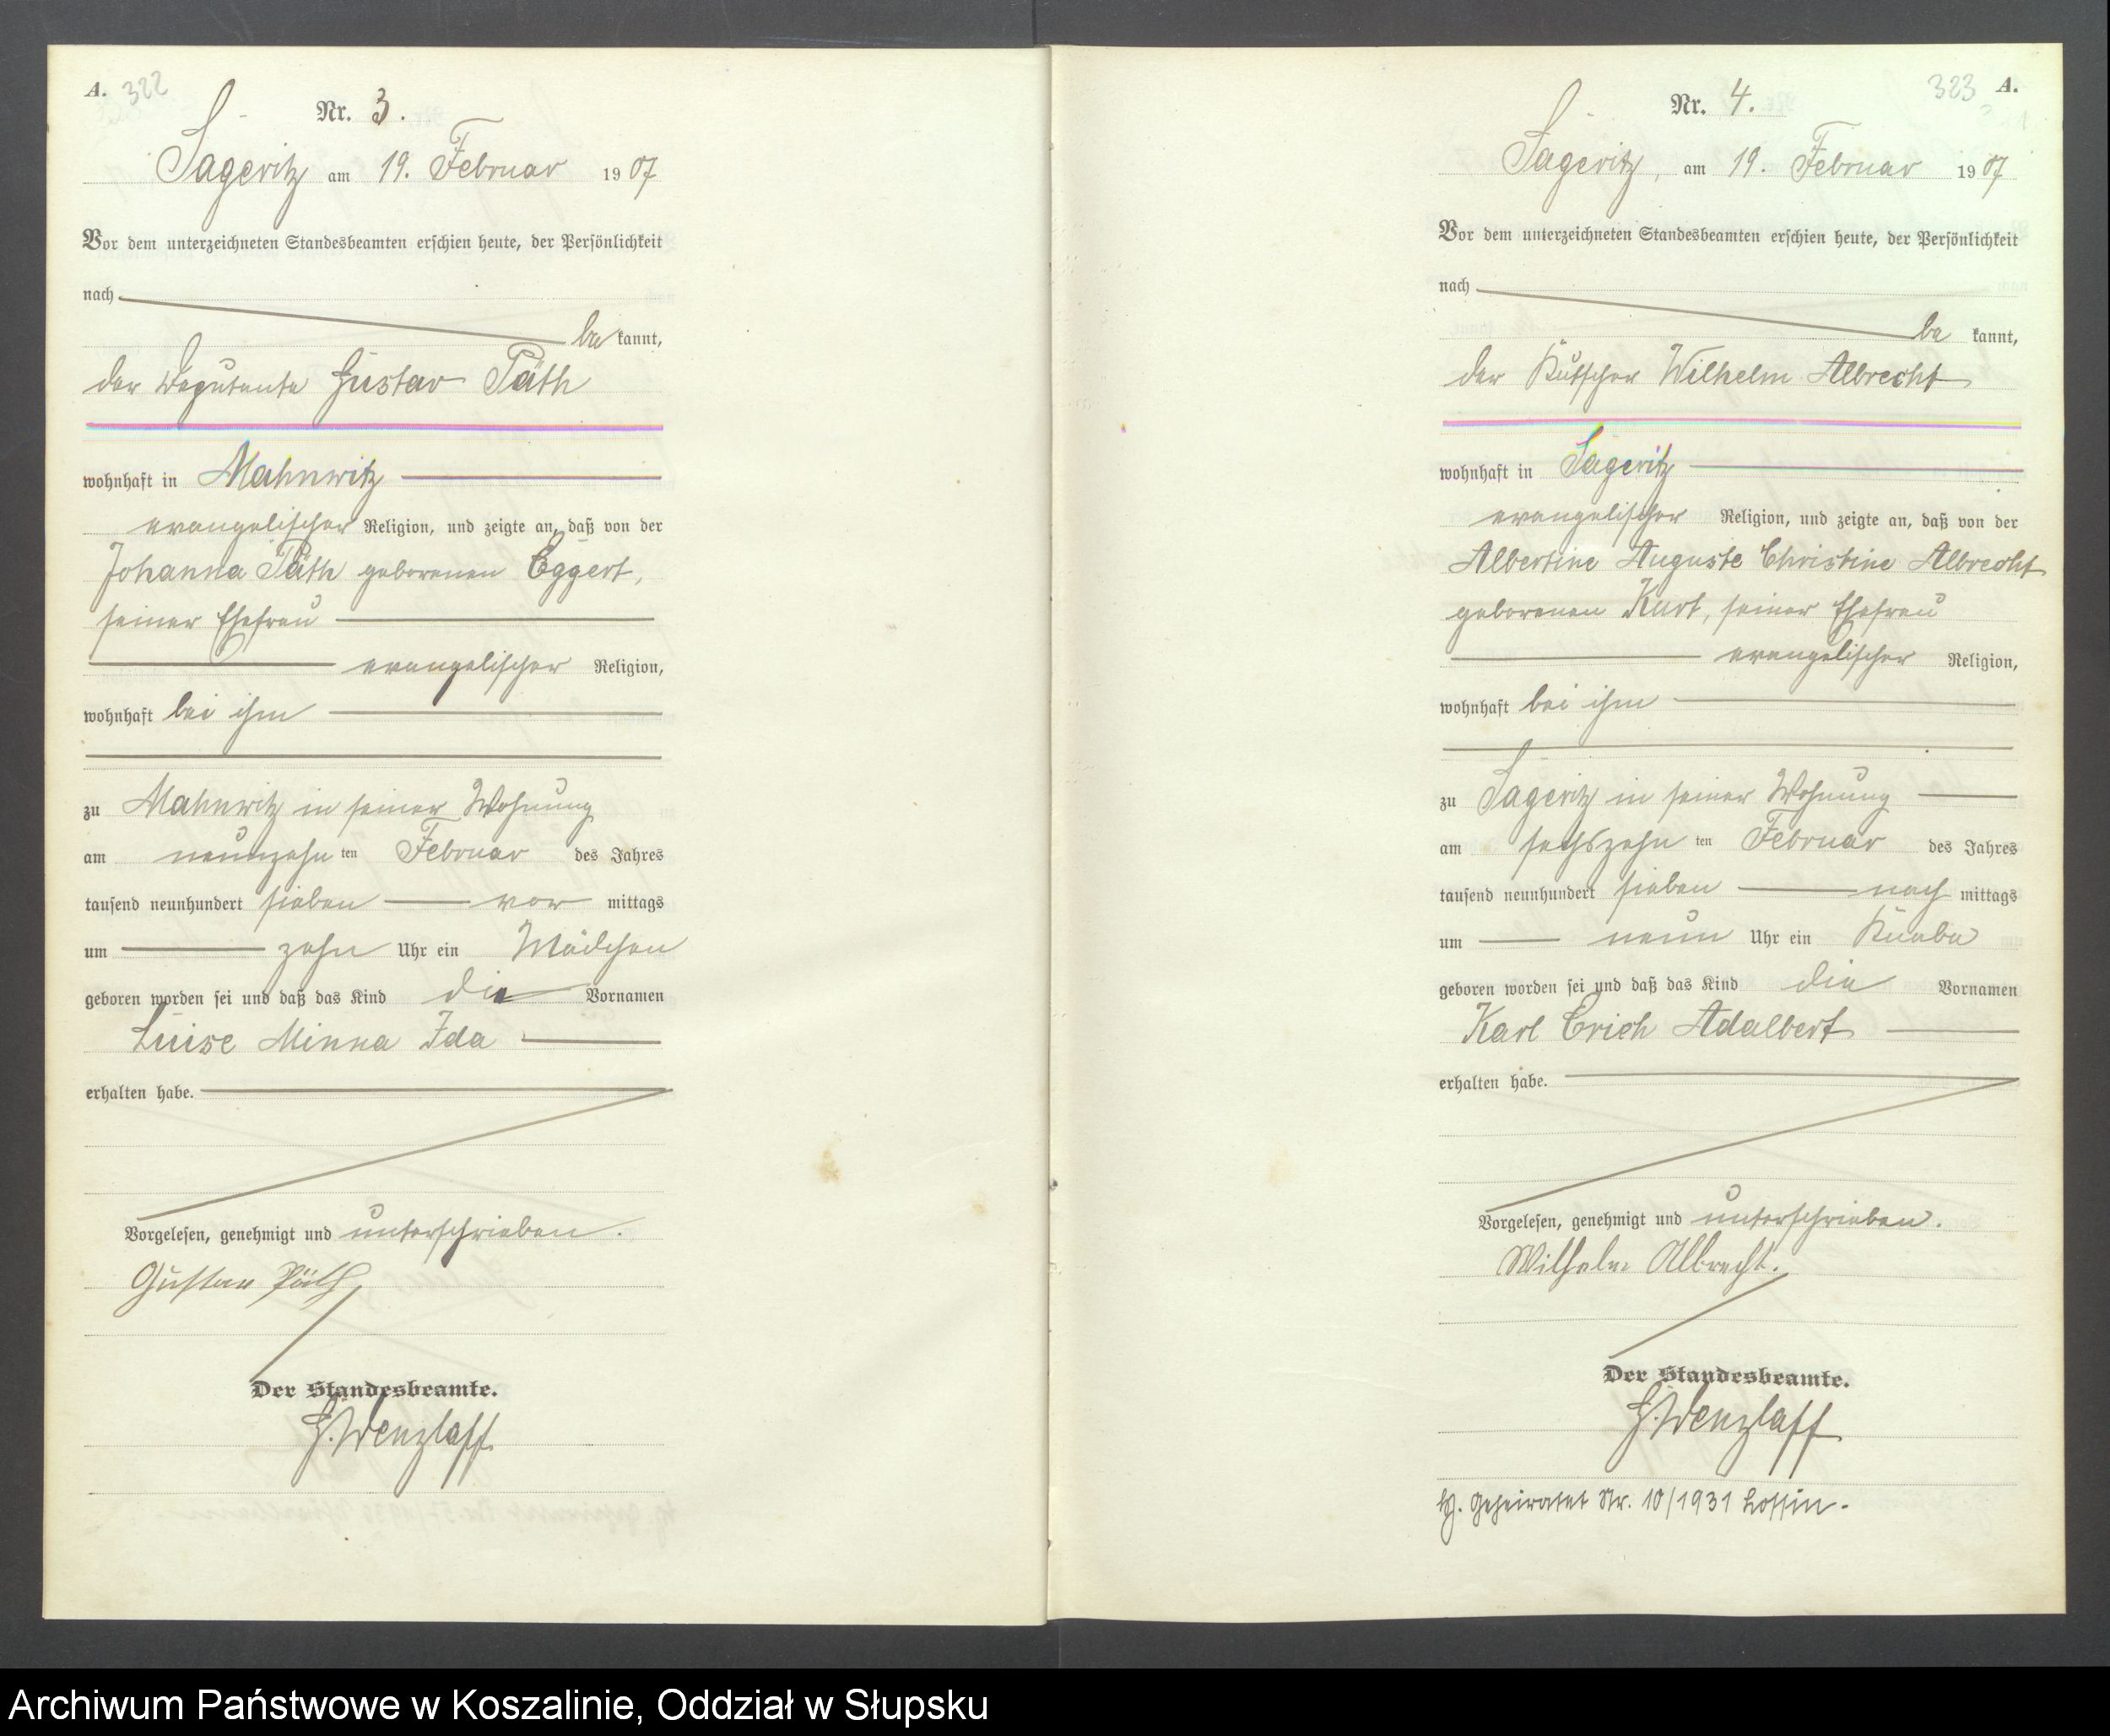 A. 322
Nr. 3.
Sageritz am 19. Februar 1907
Vor dem unterzeichneten Standesbeamten erschien heute, der Persönlichkeit
nach
be kannt,
der Deputante Gustav Päth
wohnhaft in Mahnwitz
evangelischer Religion, und zeigte an, daß von der
Johanna Päth geborenen Eggert,
seiner Ehefrau
evangelischer Religion,
wohnhaft bei ihm
zu Mahnwitz in seiner Wohnung
am neunzehn ten Februar des Jahres
tausend neunhundert sieben vor mittags
um zehn Uhr ein Mädchen
geboren worden sei und daß das Kind die Vornamen
Luise Minna Ida
erhalten habe.
Vorgelesen, genehmigt und unterschrieben.
Gustav Päth
Der Standesbeamte.
H. Wenzlaff
323 A.
Nr. 4.
Sageritz, am 19. Februar 1907
Vor dem unterzeichneten Standesbeamten erschien heute, der Persönlichkeit
nach
be kannt,
der Kutscher Wilhelm Albrecht
wohnhaft in Sageritz
evangelischer Religion, und zeigte an, daß von der
Albertine Auguste Christine Albrecht
geborenen Kurt, seiner Ehefrau
evangelischer Religion,
wohnhaft bei ihm
zu Sageritz in seiner Wohnung
am sechszehn ten Februar des Jahres
tausend neunhundert sieben nach mittags
um neun Uhr ein Knabe
geboren worden sei und daß das Kind die Vornamen
Karl Erich Adalbert
erhalten habe.
Vorgelesen, genehmigt und unterschrieben.
Wilhelm Albrecht.
Der Standesbeamte.
H. Wenzlaff
geheiratet Nr. 10/1931 Lossin.
Archiwum Państwowe w Koszalinie, Oddział w Słupsku